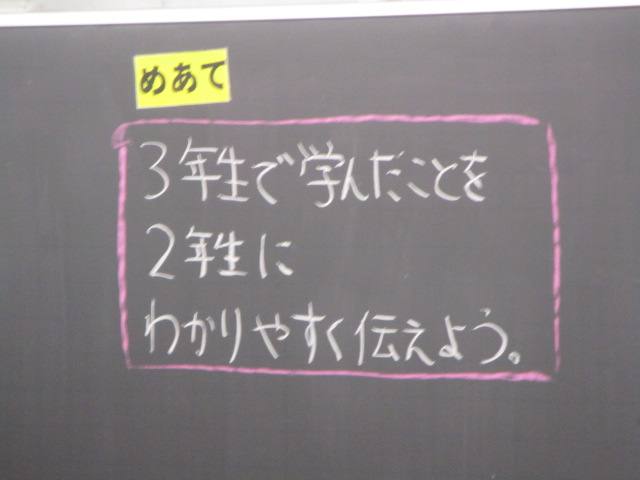 めあて
3年生で学んだことを
2年生に
わかりやすく伝えよう。